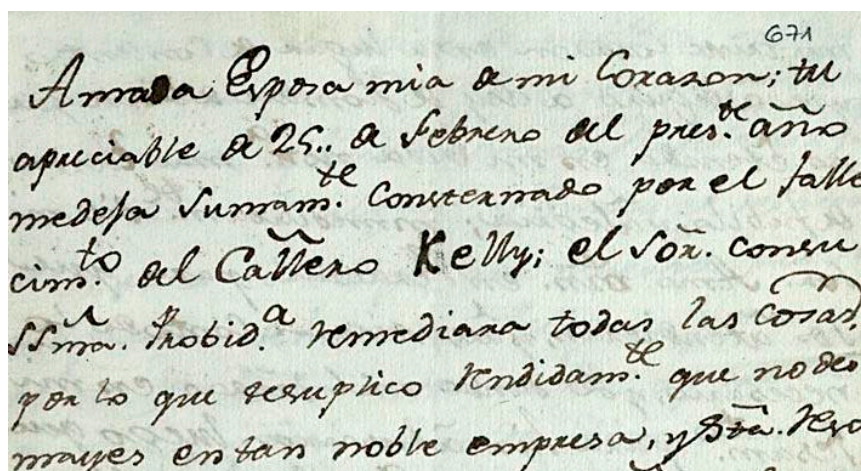 671
Amada Esposa mia de mi Corazon; tu
apreciable de 25.. de Febrero del pres.te año
medeja sumam.te Consternado por el falle
cim.to del Cavllero Kelly; el Sōr. consu
SSma. Probid.a Remediara todas las Cosas,
por lo que te suplico Rendidam.te que no des
mayes en tan noble empresa, y Sta.